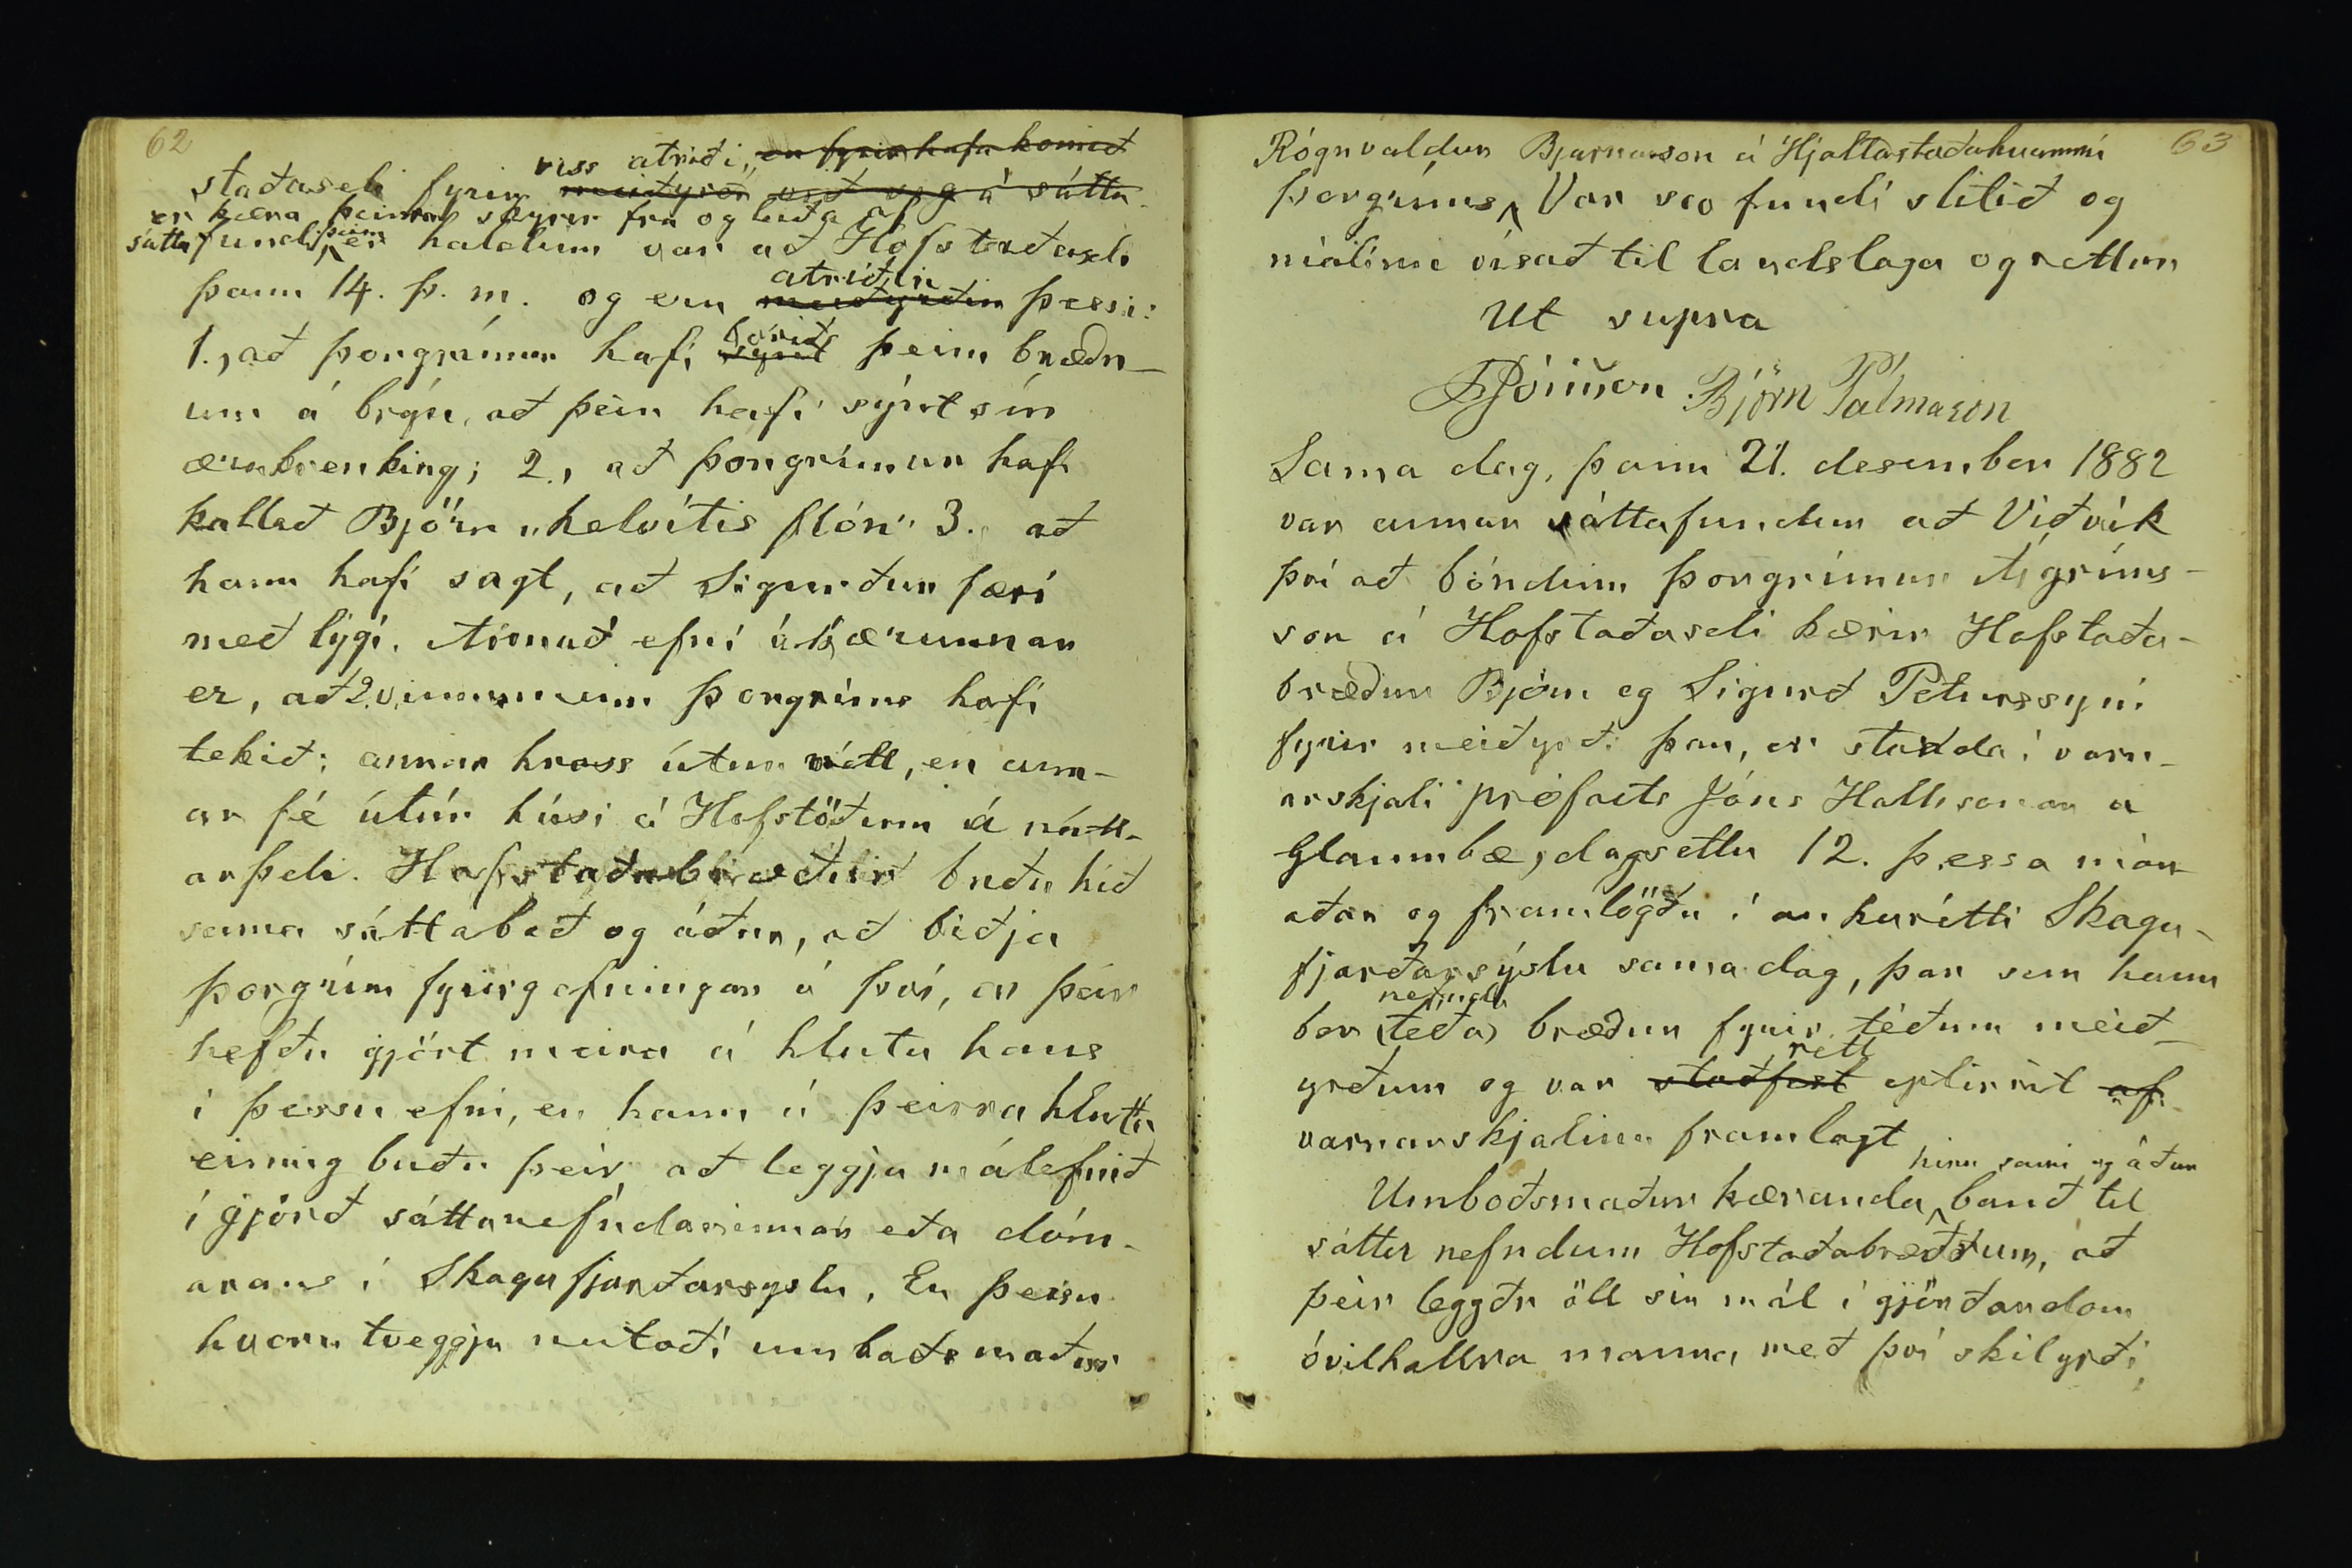 62
viss atriði, er fyrir hafa komið
staðaseli fyrir meiðyrði við og á sátta-
er kæra þeirra skýrir frá og leiða af
sátta fundi þeim er haldinn var að Hofstaðaseli
atriðin
þann 14. þ. m. og eru meiðyrðin þessi:
borið
1., að Þorgrímur hafi sýnt þeim bræðr-
um á brýn, að þeir hafi sýnt sín
ærukrenking; 2., að Þorgrímur hafi
kallað Björn „helvítis flón" 3. að
hann hafi sagt, að Sigurður færi
með lýgi. Annað efni ákærunnar
er, að 2 vinnumenn Þorgríms hafi
tekið; annar hross útúr rétt, en ann-
ar fé útúr húsi á Hofstöðum á nátt-
arþeli. Hofstaðabræður buðu hið
sama sáttaboð og áður, að biðja
Þorgrím fyrirgefningar á því, er þeir
hefðu gjört meira á hluta hans
í þessu efni, en hann á þeirra hluta
einnig buðu þeir að leggja málefnið
í gjörð sáttanefndarinnar eða dóm-
arans í Skagafjarðarsýslu. En þessu
hvoru tveggja neitaði umboðsmaður
63
Rögnvaldur Bjarnason á Hjaltastaðahvammi
Þorgríms, Var svo fundi slitið og
málinu vísað til landslaga og rettar
Ut supra
Björn Pálmason
Sama dag, þann 21. desember 1882
var annar sáttafundur að Viðvík
því að bóndinn Þorgrímur Ásgríms-
son á Hofstaðaseli kærir Hofstaða-
bræður Björn og Sigurð Péturssyni
fyrir meiðyrði þau, er standa í varn-
arskjali prófasts Jóns Hallssonar á
Glaumbæ, dagsettu 12. þessa mán-
aðar og framlögðu í aukarétti Skaga-
fjarðarsýslu sama dag, þar sem hann
nefnda
ber (téða) bræður fyrir téðum meið-
rétt
yrðum og var staðfest eptirrit af
varnarskjalinu framlagt
hinn sami og áður
Umboðsmaður kæranda bauð til
sátta nefndum Hofstaðabræðrum, að
þeir legðu öll sín mál í gjörðardóm
óvilhallra manna með því skilyrði,